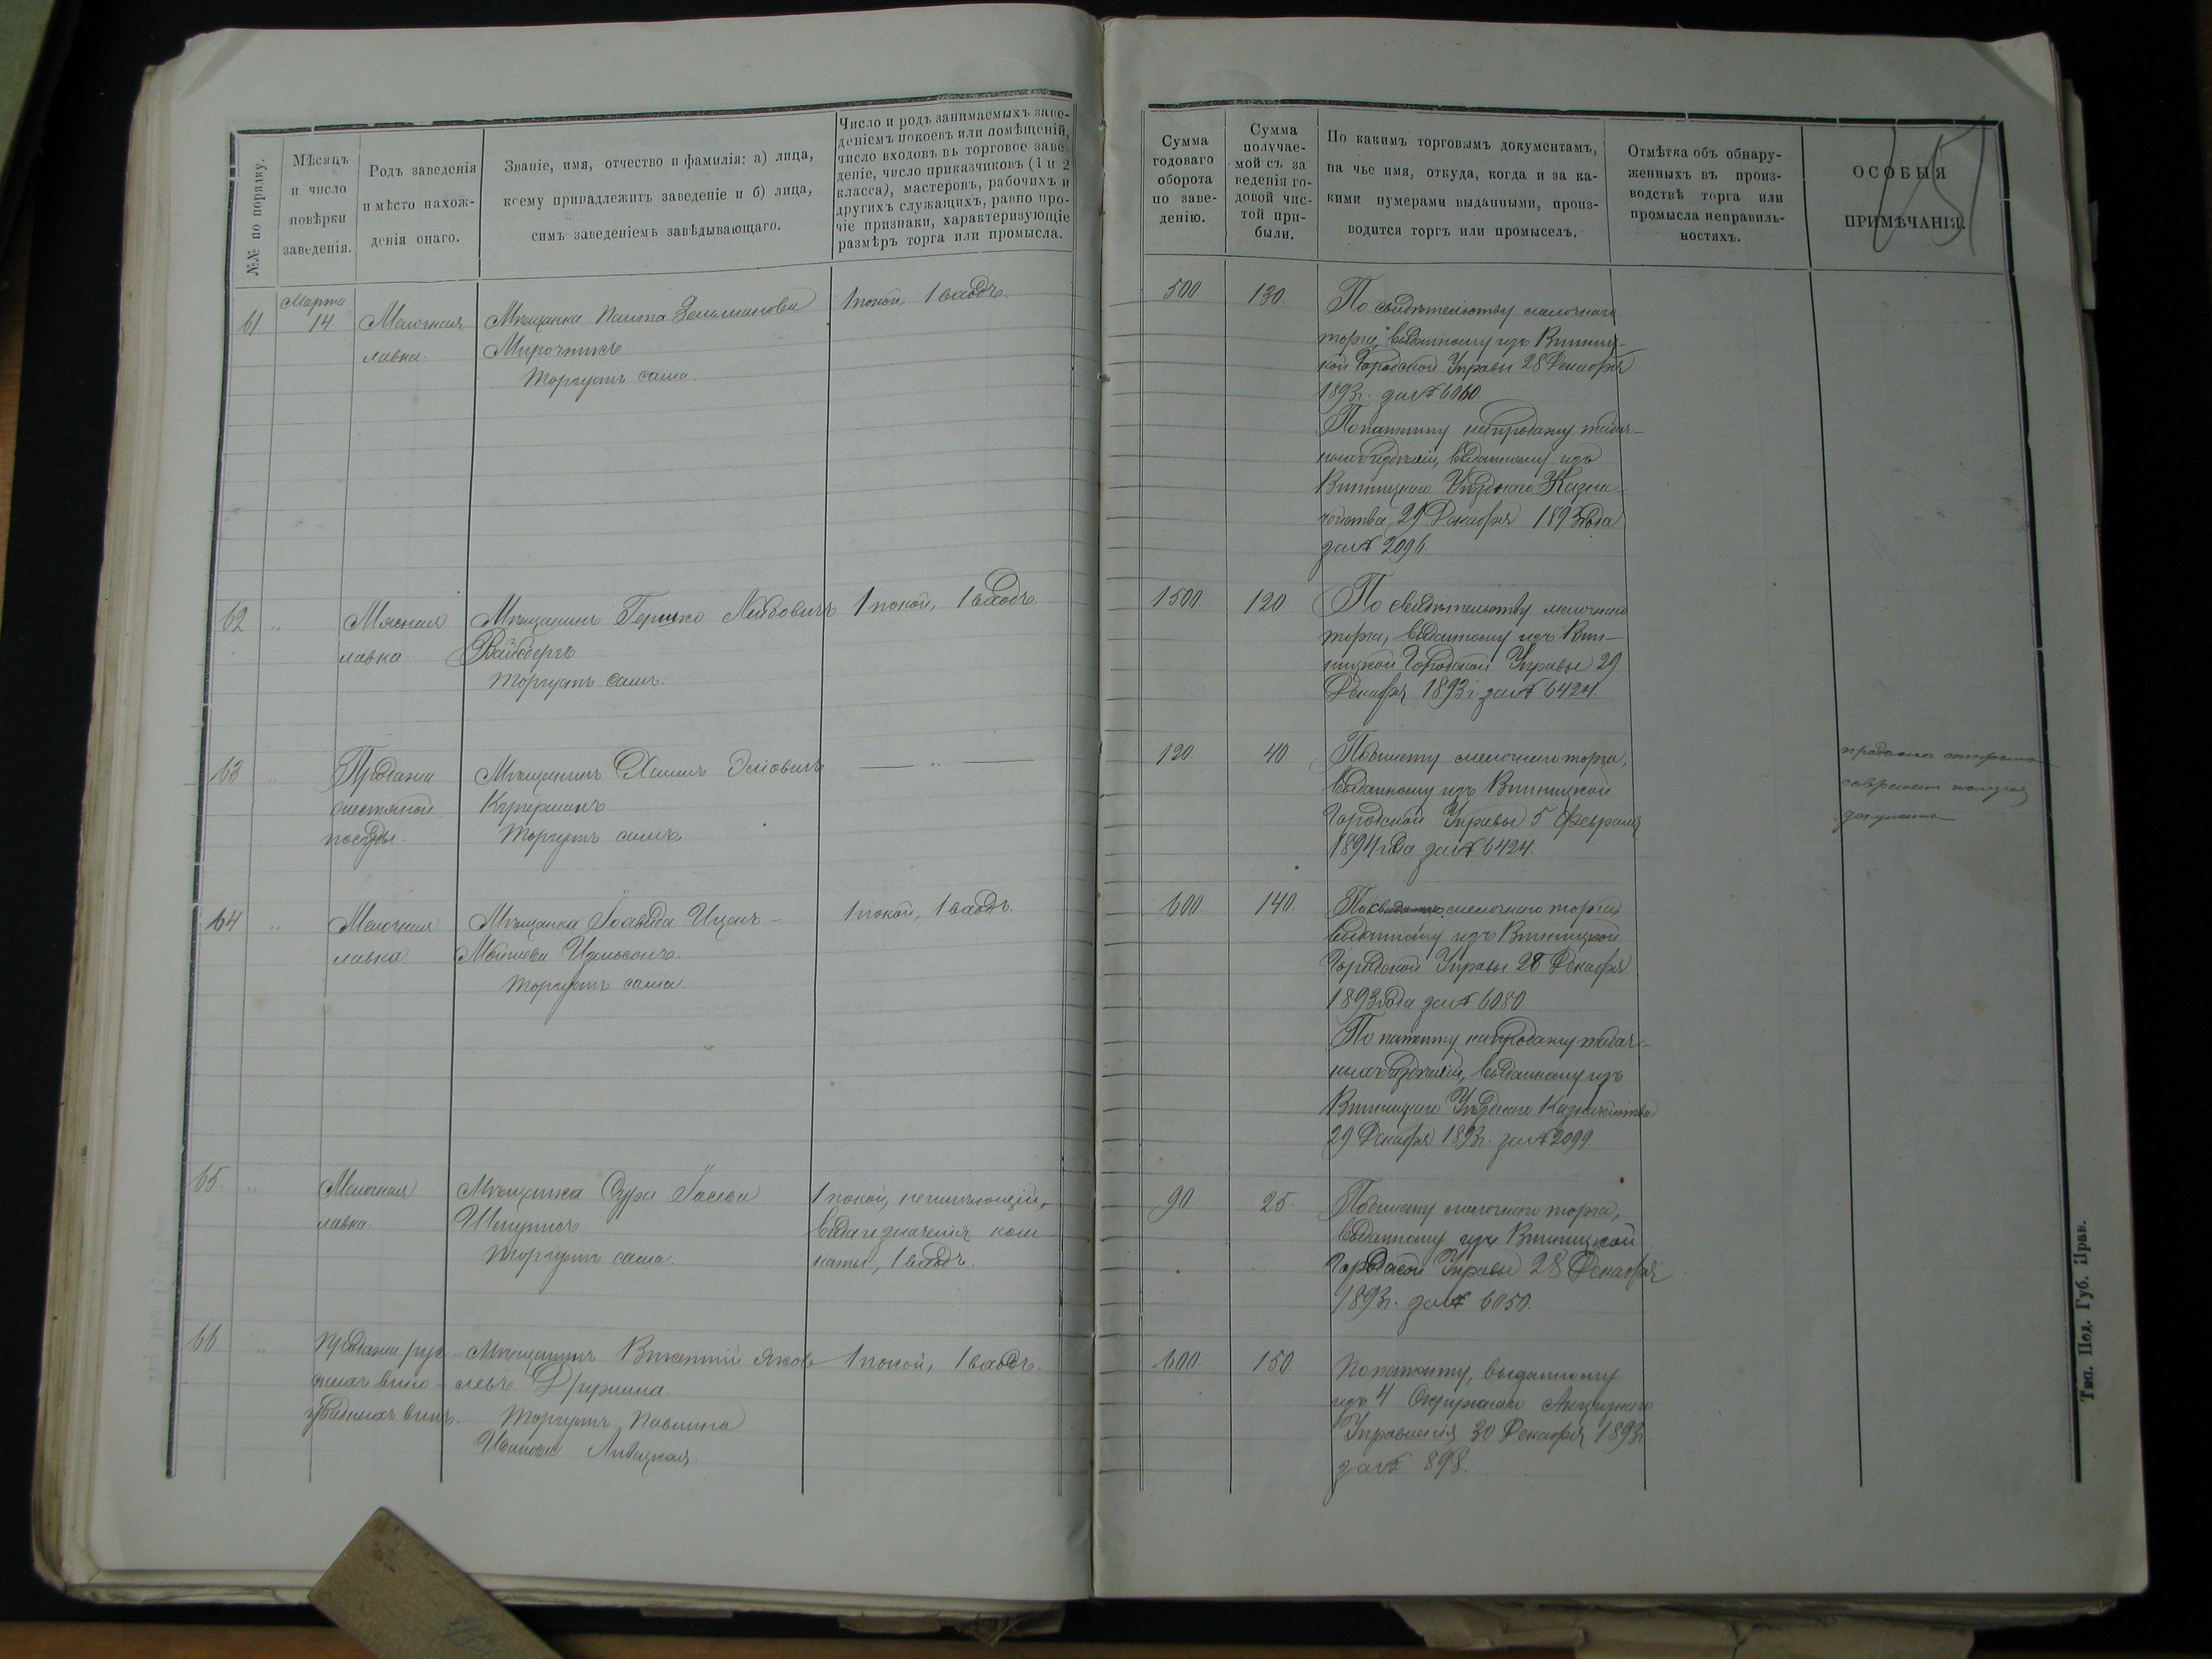 №№ по порядку.
Мѣсяцъ
и число
повѣрки
заведенія.
Родъ заведенія
и мѣсто нахож-
денія онаго.
Званіе, имя, отчество и фамилія: а) лица,
коему принадлежитъ заведеніе и б) лица,
симъ заведеніемъ завѣдывающаго.
Число и родъ занимаемыхъ заве-
деніемъ покоевъ или помѣщеній,
число входовъ въ торговое заве-
деніе, число приказчиковъ (1 и 2
класса), мастеровъ, рабочихъ и
другихъ служащихъ, равно про-
чіе признаки, характеризующіе
размѣръ торга или промысла.
Сумма
годоваго
оборота
по заве-
денію.
Сумма
получае-
мой съ за
веденія го-
довой чис-
той при-
были.
По какимъ торговымъ документамъ,
на чье имя, откуда, когда и за ка-
кими нумерами выданными, произ-
водится торгъ или промыселъ.
Отмѣтка объ обнару-
женныхъ въ произ-
водствѣ торга или
промысла неправиль-
ностяхъ.
ОСОБЫЯ
ПРИМѢЧАНІЯ.
151
61
Марта
14
Мелочная
лавка.
Мѣщанка Зельманова
Мирочникъ
Торгуетъ сама.
1 покой, 1 входъ.
500
130
По свидѣтельству мелочнаго
торга, выданному изъ Винниц-
кой Городской Управы 28 Декабря
1893 г. за № 6060.
По патенту на продажу табач-
ныхъ издѣлій, выданному изъ
Винницкаго Уѣзднаго Казна-
чейства 29 Декабря 1893 года
за № 2096.
62
"
Мясная
лавка.
Мѣщанинъ Гершко Лейбовичъ
Вайсбергъ
Торгуетъ самъ.
1 покой, 1 входъ.
1500
120
По свидѣтельству мелочнаго
торга, выданному изъ Вин-
ницкой Городской Управы 29
Декабря 1893 г. за № 6424.
63
"
Продажа
жестяной
посуды.
Мѣщанинъ Хаимъ
Куперманъ
Торгуетъ самъ.
— " —
120
40
По билету мелочнаго торга,
выданному изъ Винницкой
Городской Управы 5 Февраля
1894 года за № 6424.
продажа открыта
документа
64
"
Мелочная
лавка
Мѣщанка
Торгуетъ сама.
1 покой, 1 входъ.
600
140.
мелочнаго торга,
выданному изъ Винницкой
Городской Управы 28 Декабря
1893 года за № 6080
По патенту на продажу табач-
ныхъ издѣлій, выданному изъ
Винницкаго Уѣзднаго Казначейства
29 Декабря 1893 г. за № 2099.
65.
"
Мелочная
лавка.
Мѣщанка Сура
Торгуетъ сама.
1 покой, неимѣющій
вида и значенія ком-
наты, 1 входъ.
90.
25.
По билету мелочнаго торга,
выданному изъ Винницкой
Городской Управы 28 Декабря
1893 г. за № 6050.
66
"
Продажа рус-
скихъ вино-
градныхъ винъ.
Мѣщанинъ Викентій Яков-
левъ
Торгуетъ Павлина
Иванова
1 покой, 1 входъ.
600.
150.
По патенту, выданному
изъ 4 Окружнаго Акцизнаго
Управленія 30 Декабря 1893 г.
за № 898.
Тип. Под. Губ. Прав.